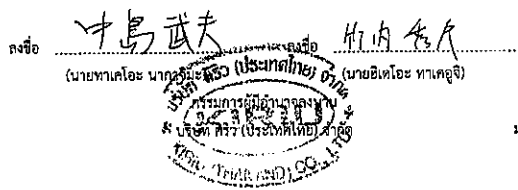 ลงชื่อ 中島 武夫 ลงชื่อ 竹内
(นายทาเคโอะ นากาจิมะ) (นายฮิเดโอะ ทาเคอูจิ)
บริษัท คิริว (ประเทศไทย) จำกัด
กรรมการผู้มีอำนาจลงนาม
บริษัท คิริว (ประเทศไทย) จำกัด
KIRIU
KIRIU (THAILAND) CO., LTD.